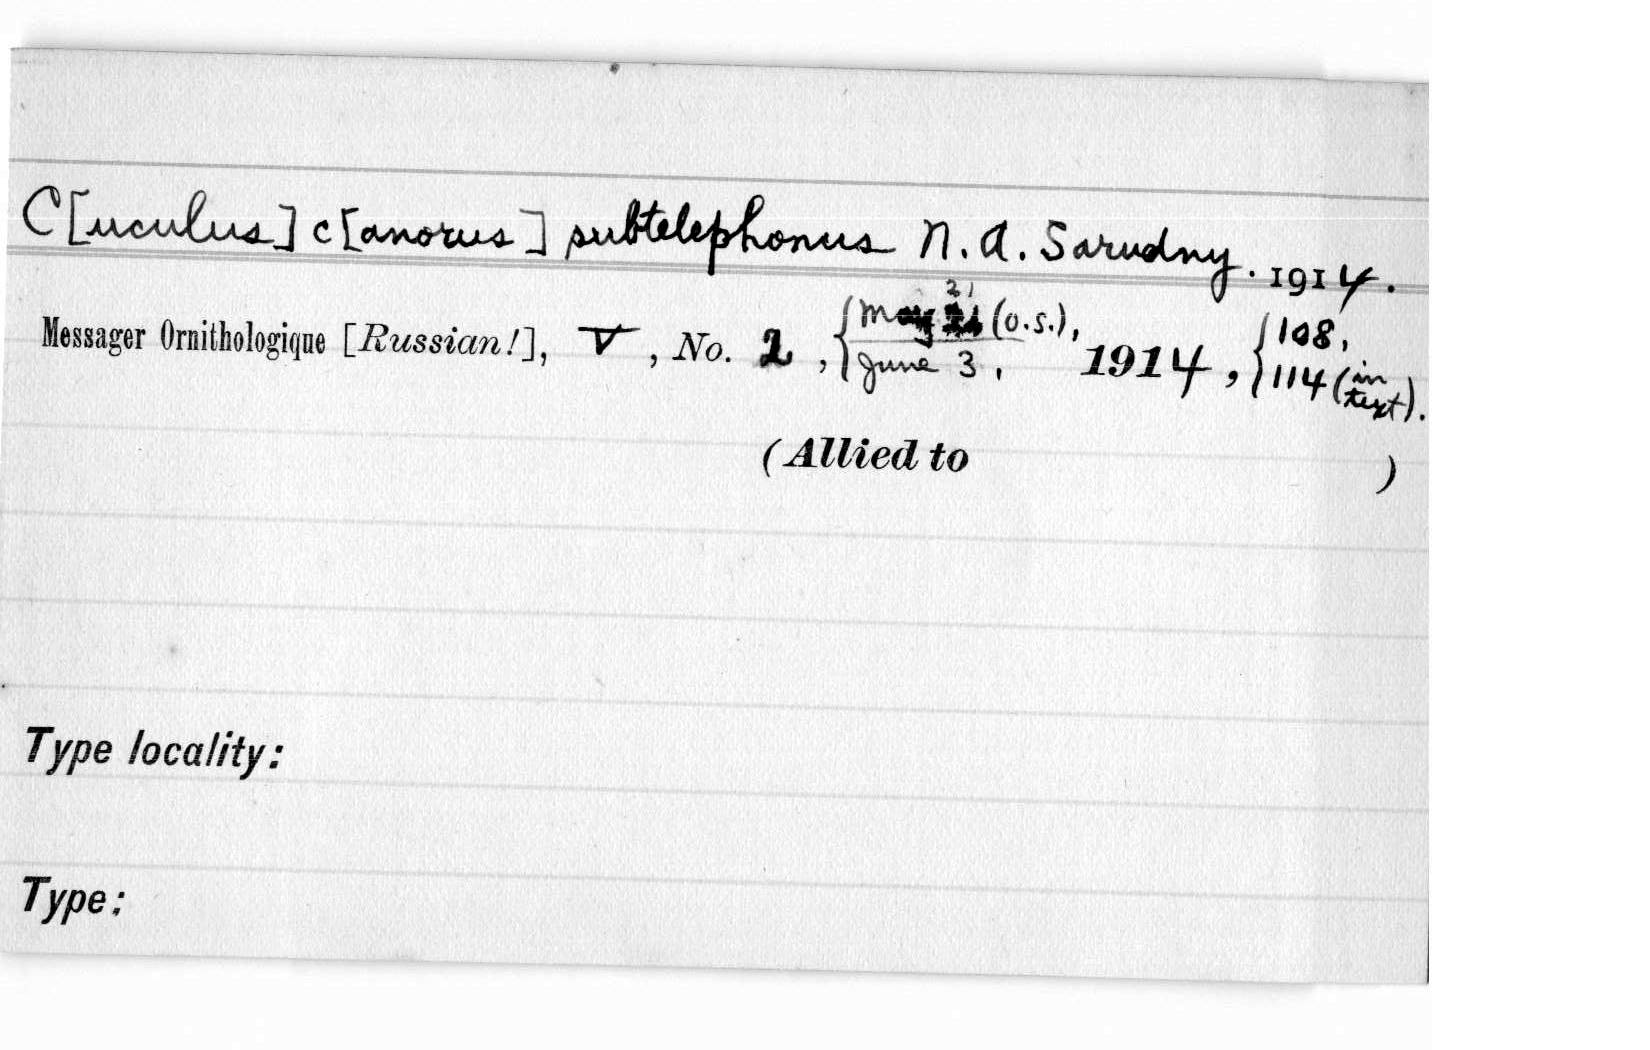 C[uculus] c[anorus] subtelephonus N. A. Sarudny. 1914.
Messager Ornithologique [Russian!], V, No. 2, {May 21 (o.s.), June 3, 1914, {108, 114 (in text).
(Allied to )
Type locality:
Type: